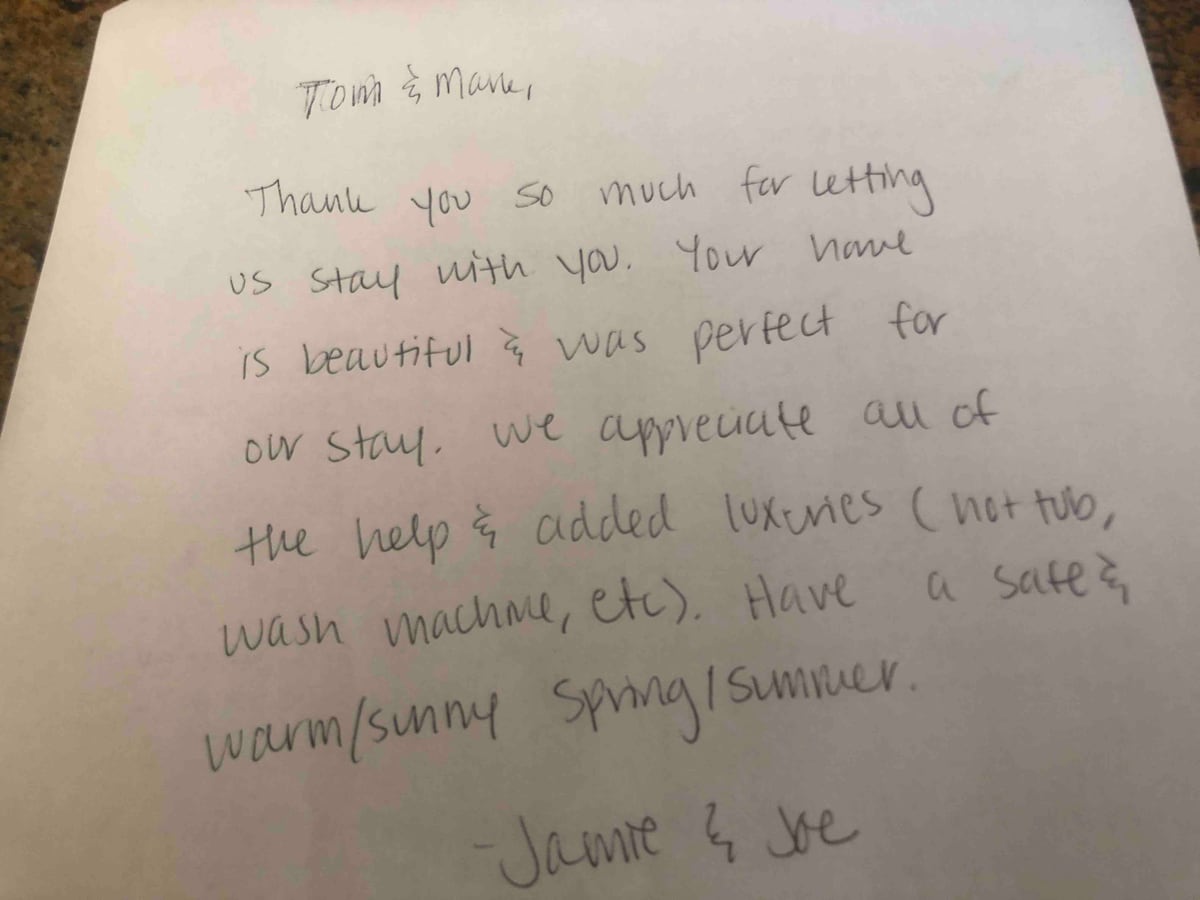 Tom & Mark,
Thank you so much for letting
us stay with you. Your home
is beautiful & was perfect for
our stay. We appreciate all of
the help & added luxuries (hot tub,
wash machine, etc). Have a safe &
warm/sunny Spring/summer.
-Jamie & Joe